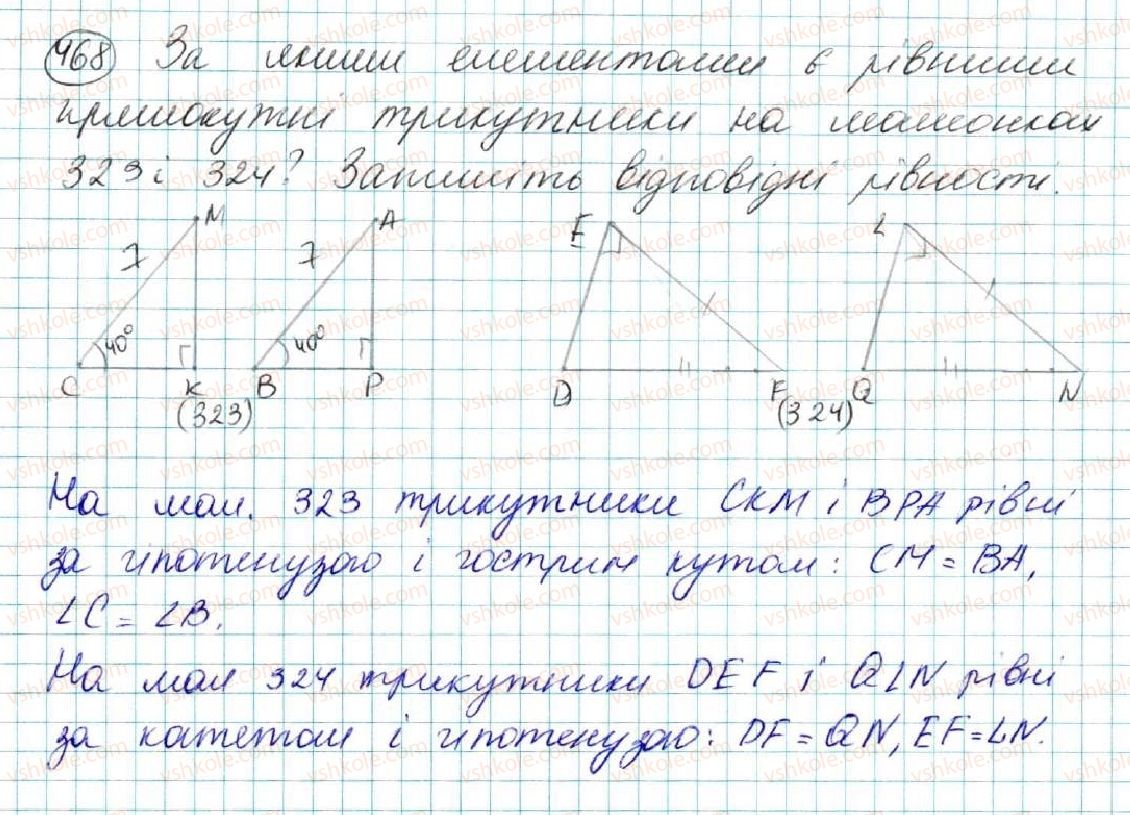 468 За якими елементами є рівними
прямокутні трикутники на малюнках
323 і 324? Запишіть відповідні рівності.
M A E L
7 7
40° 40°
C K B P D F Q N
(323) (324)
На мал. 323 трикутники CKM і BPA рівні
за гіпотенузою і гострим кутом: CM = BA,
∠C = ∠B.
На мал 324 трикутники DEF і QLN рівні
за катетом і гіпотенузою: DF = QN, EF = LN.